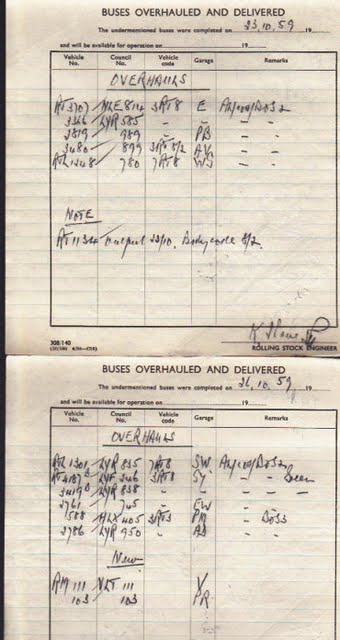 BUSES OVERHAULED AND DELIVERED
The undermentioned buses were completed on 23.10.59 19
and will be available for operation on 19
Vehicle No. Council No. Vehicle code Garage Remarks
OVERHAULS
RT3707 NLE814 3RT8 E
3366 LYR585 - - - -
3819 989 - PB - -
3480 899 3RT8/2 AV - -
RTL1248 780 7RT8 - -
NOTE
RT1134 23/10. Bodycode 8/2
308/140
ROLLING STOCK ENGINEER
BUSES OVERHAULED AND DELIVERED
The undermentioned buses were completed on 26.10.59 19
and will be available for operation on 19
Vehicle No. Council No. Vehicle code Garage Remarks
OVERHAULS
RTL1301 LYR835 7RT8 SW
RT4187 LYF346 3RT8 SY - - Green
3419 LYR838 - - - -
3761 745 - EW - -
1588 KLX405 3RT3 PM - D052
3786 LYR950 - AD - -
New
RM111 VLT111 V
103 103 PR